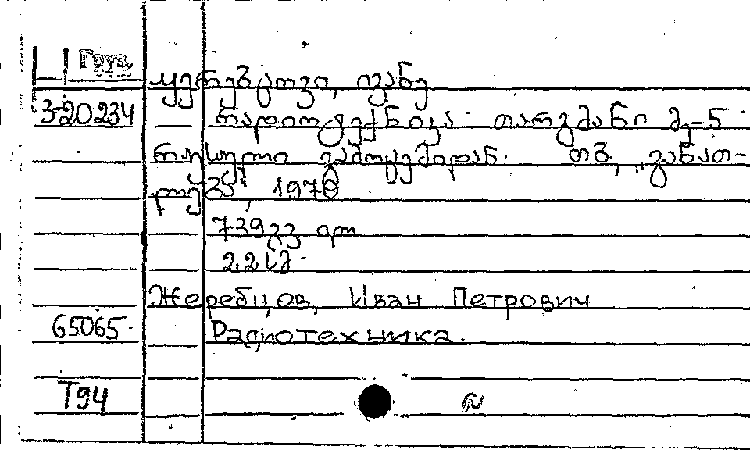 Груз.
ჟერებცოვი, ივანე
3-20234 რადიოტექნიკა. თარგმანი მე-5
რუსული გამოცემიდან. თბ., „განათ-
ლება“, 1970
739გვ ილ
2.21მ.
Жеребцов, Иван Петрович
65065. Радиотехника.
Т94